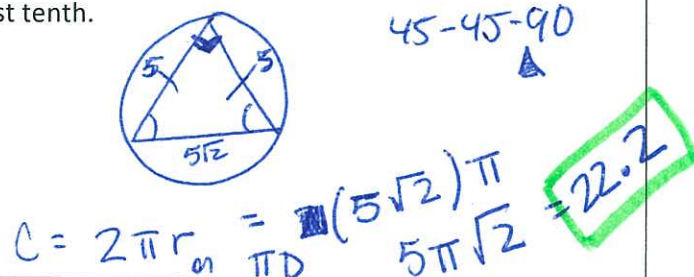 st tenth.
45-45-90
5 5
5√2
C = 2πr or πD = (5√2)π
5π√2 = 22.2